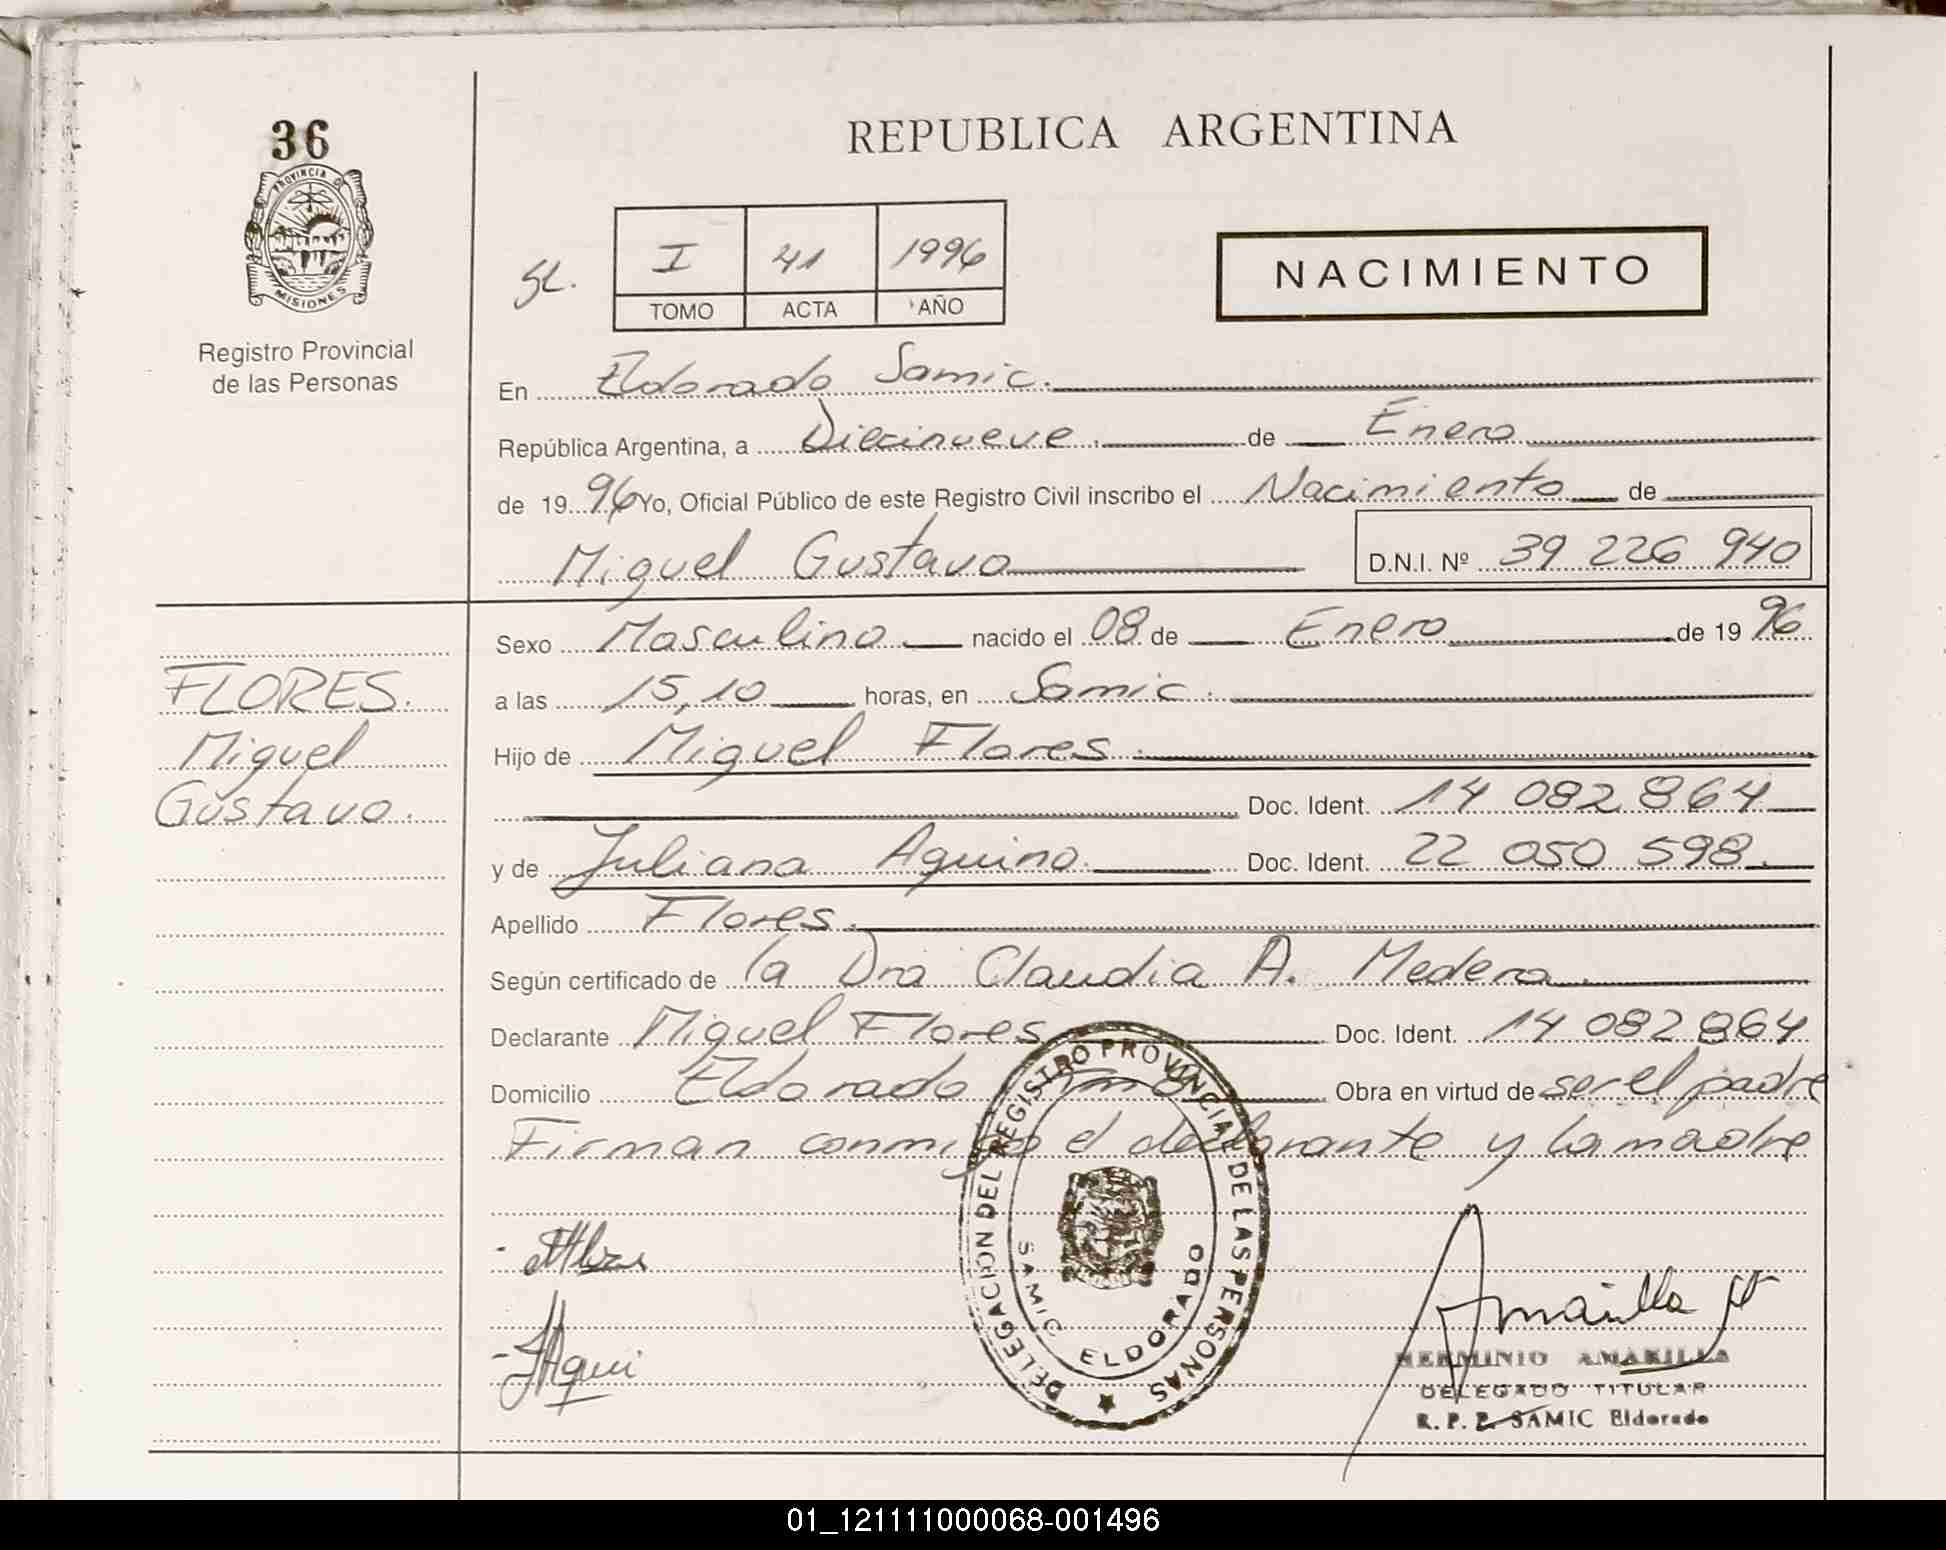 36
PROVINCIA D
MISIONES
Registro Provincial
de las Personas
REPUBLICA ARGENTINA
SL.
I 41 1996
TOMO ACTA AÑO
NACIMIENTO
En Eldorado Samic.
República Argentina, a Diecinueve de Enero
de 1996 Yo, Oficial Público de este Registro Civil inscribo el Nacimiento de
Miguel Gustavo D.N.I. Nº 39 226 940
Sexo Masculino nacido el 08 de Enero de 1996
a las 15,10 horas, en Samic.
Hijo de Miguel Flores.
Doc. Ident. 14 082 864
y de Juliana Aquino. Doc. Ident. 22 050 598.
Apellido Flores.
Según certificado de la Dra Claudia A. Medera.
Declarante Miguel Flores Doc. Ident. 14 082 864
Domicilio Eldorado Obra en virtud de ser el padre
Firman conmigo el declarante y la madre
FLORES.
Miguel
Gustavo.
DELEGACION DEL REGISTRO PROVINCIAL DE LAS PERSONAS
SAMIC ELDORADO
JAqui
Amarilla H
HERMINIO AMARILLA
DELEGADO TITULAR
R. P. P. SAMIC Eldorado
01_121111000068-001496